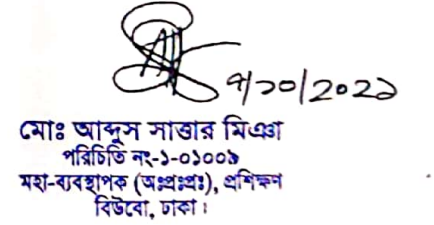 ৭/১০/২০২১
মোঃ আব্দুস সাত্তার মিঞা
পরিচিতি নং-১-০১০০৯
মহা-ব্যবস্থাপক (অঃপ্রঃপ্রঃ), প্রশিক্ষণ
বিউবো, ঢাকা।